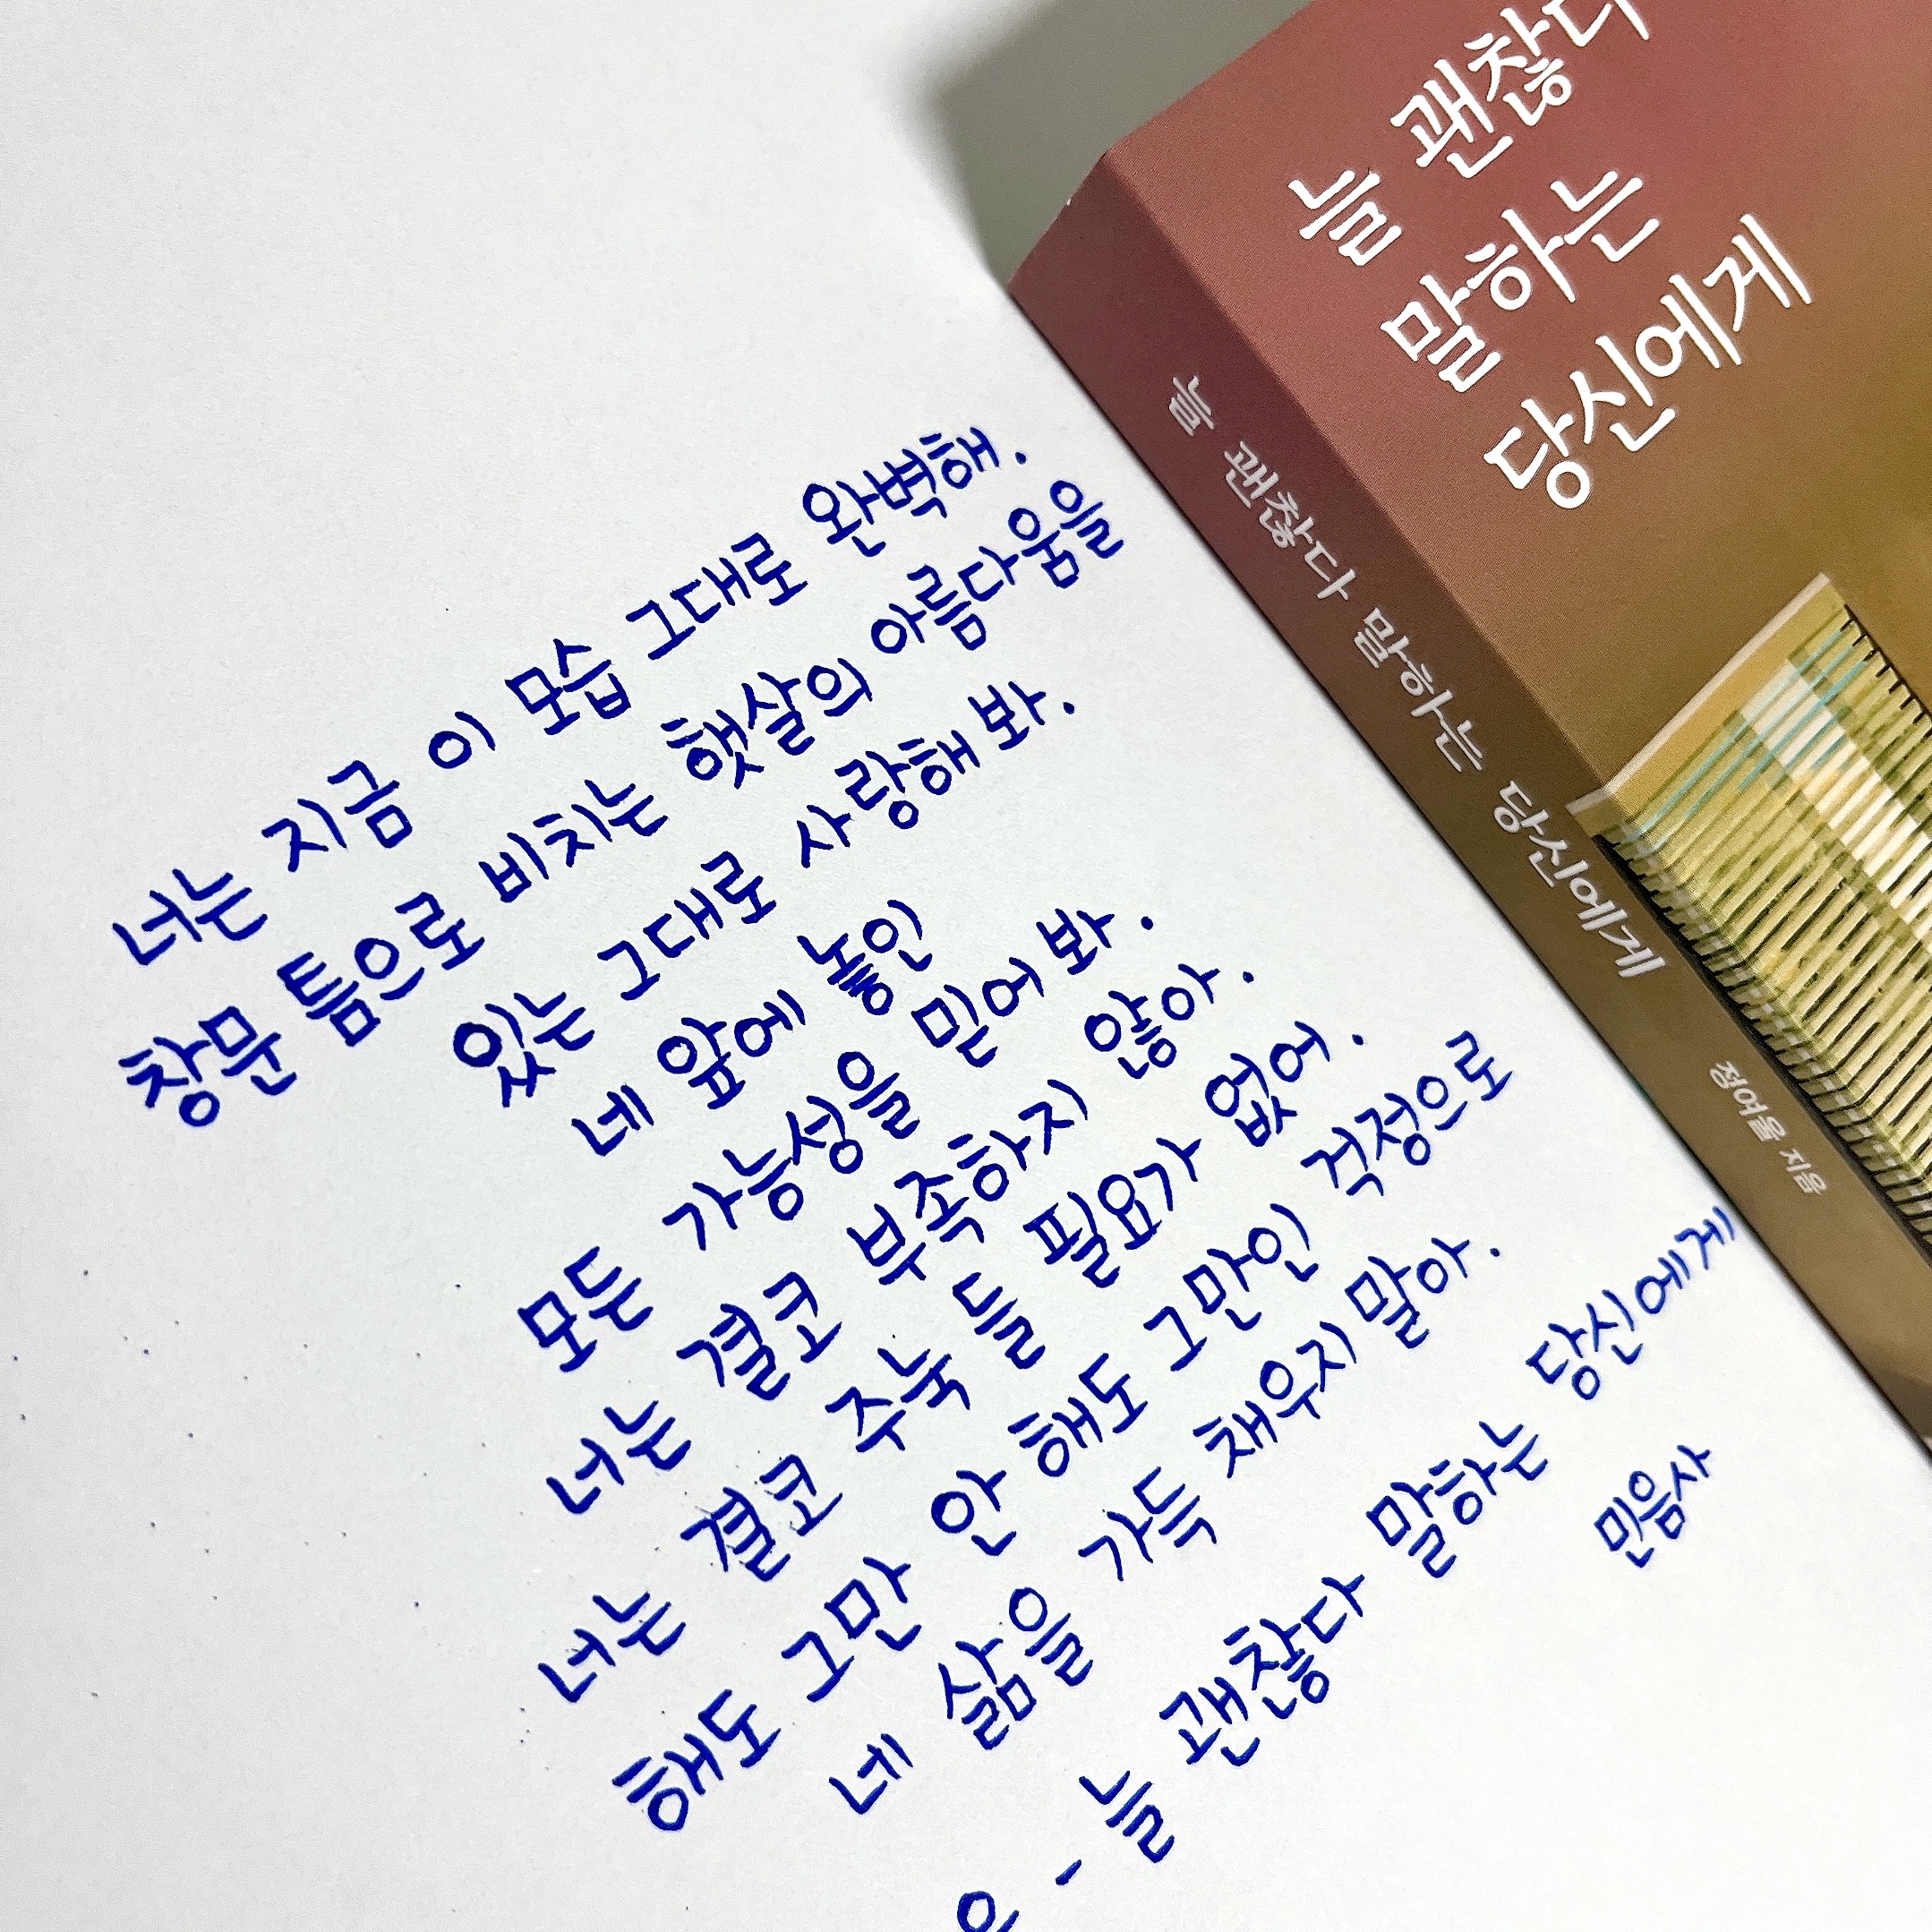 늘 괜찮다
말하는
당신에게
늘 괜찮다 말하는 당신에게
정여울 지음
너는 지금 이 모습 그대로 완벽해.
창문 틈으로 비치는 햇살의 아름다움을
있는 그대로 사랑해 봐.
네 앞에 놓인
모든 가능성을 믿어 봐.
너는 결코 부족하지 않아.
너는 결코 주눅 들 필요가 없어.
해도 그만 안 해도 그만인 걱정으로
네 삶을 가득 채우지 말아.
- 늘 괜찮다 말하는 당신에게
민음사